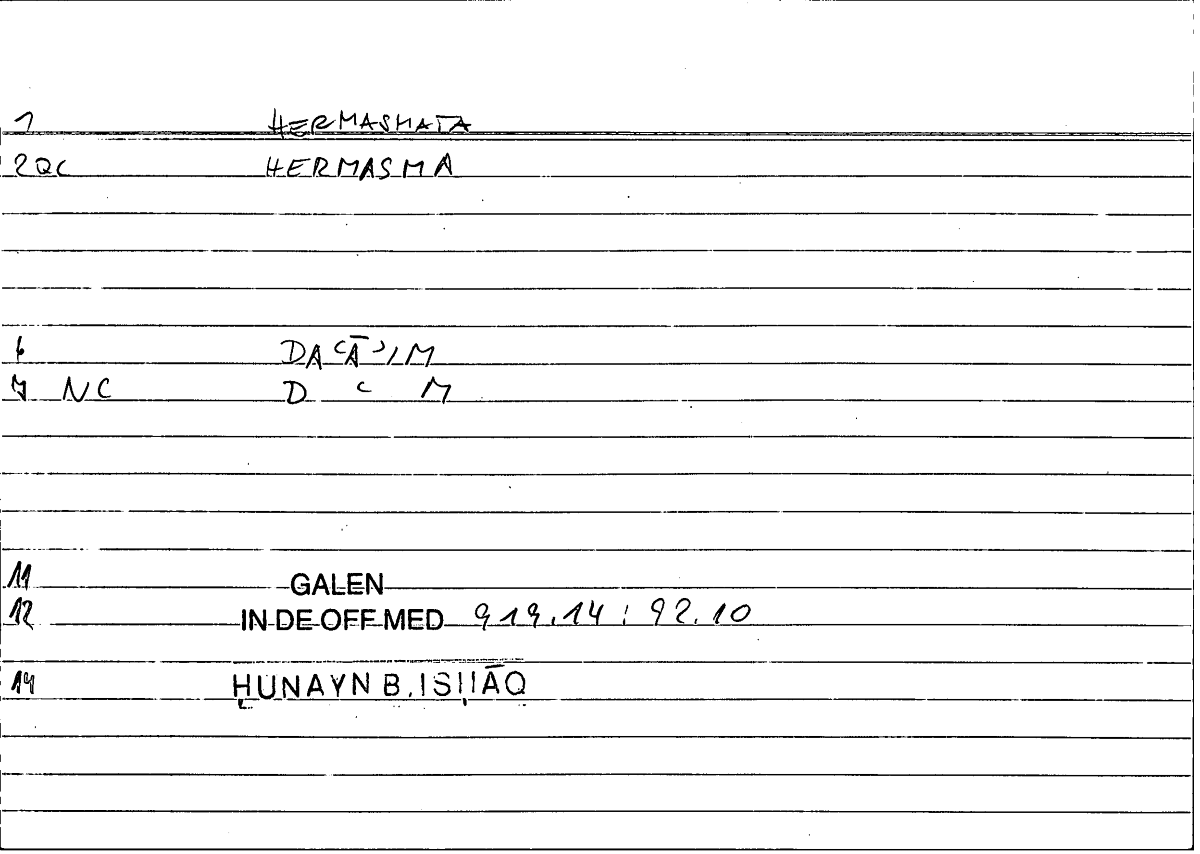 1 HERMASMATA
2QC HERMASMA
6 DAʿĀʾIM
7 NC D ʿ M
11 GALEN
12 IN DE OFF MED 919.14 : 92.10
14 ḤUNAYN B. ISḤĀQ